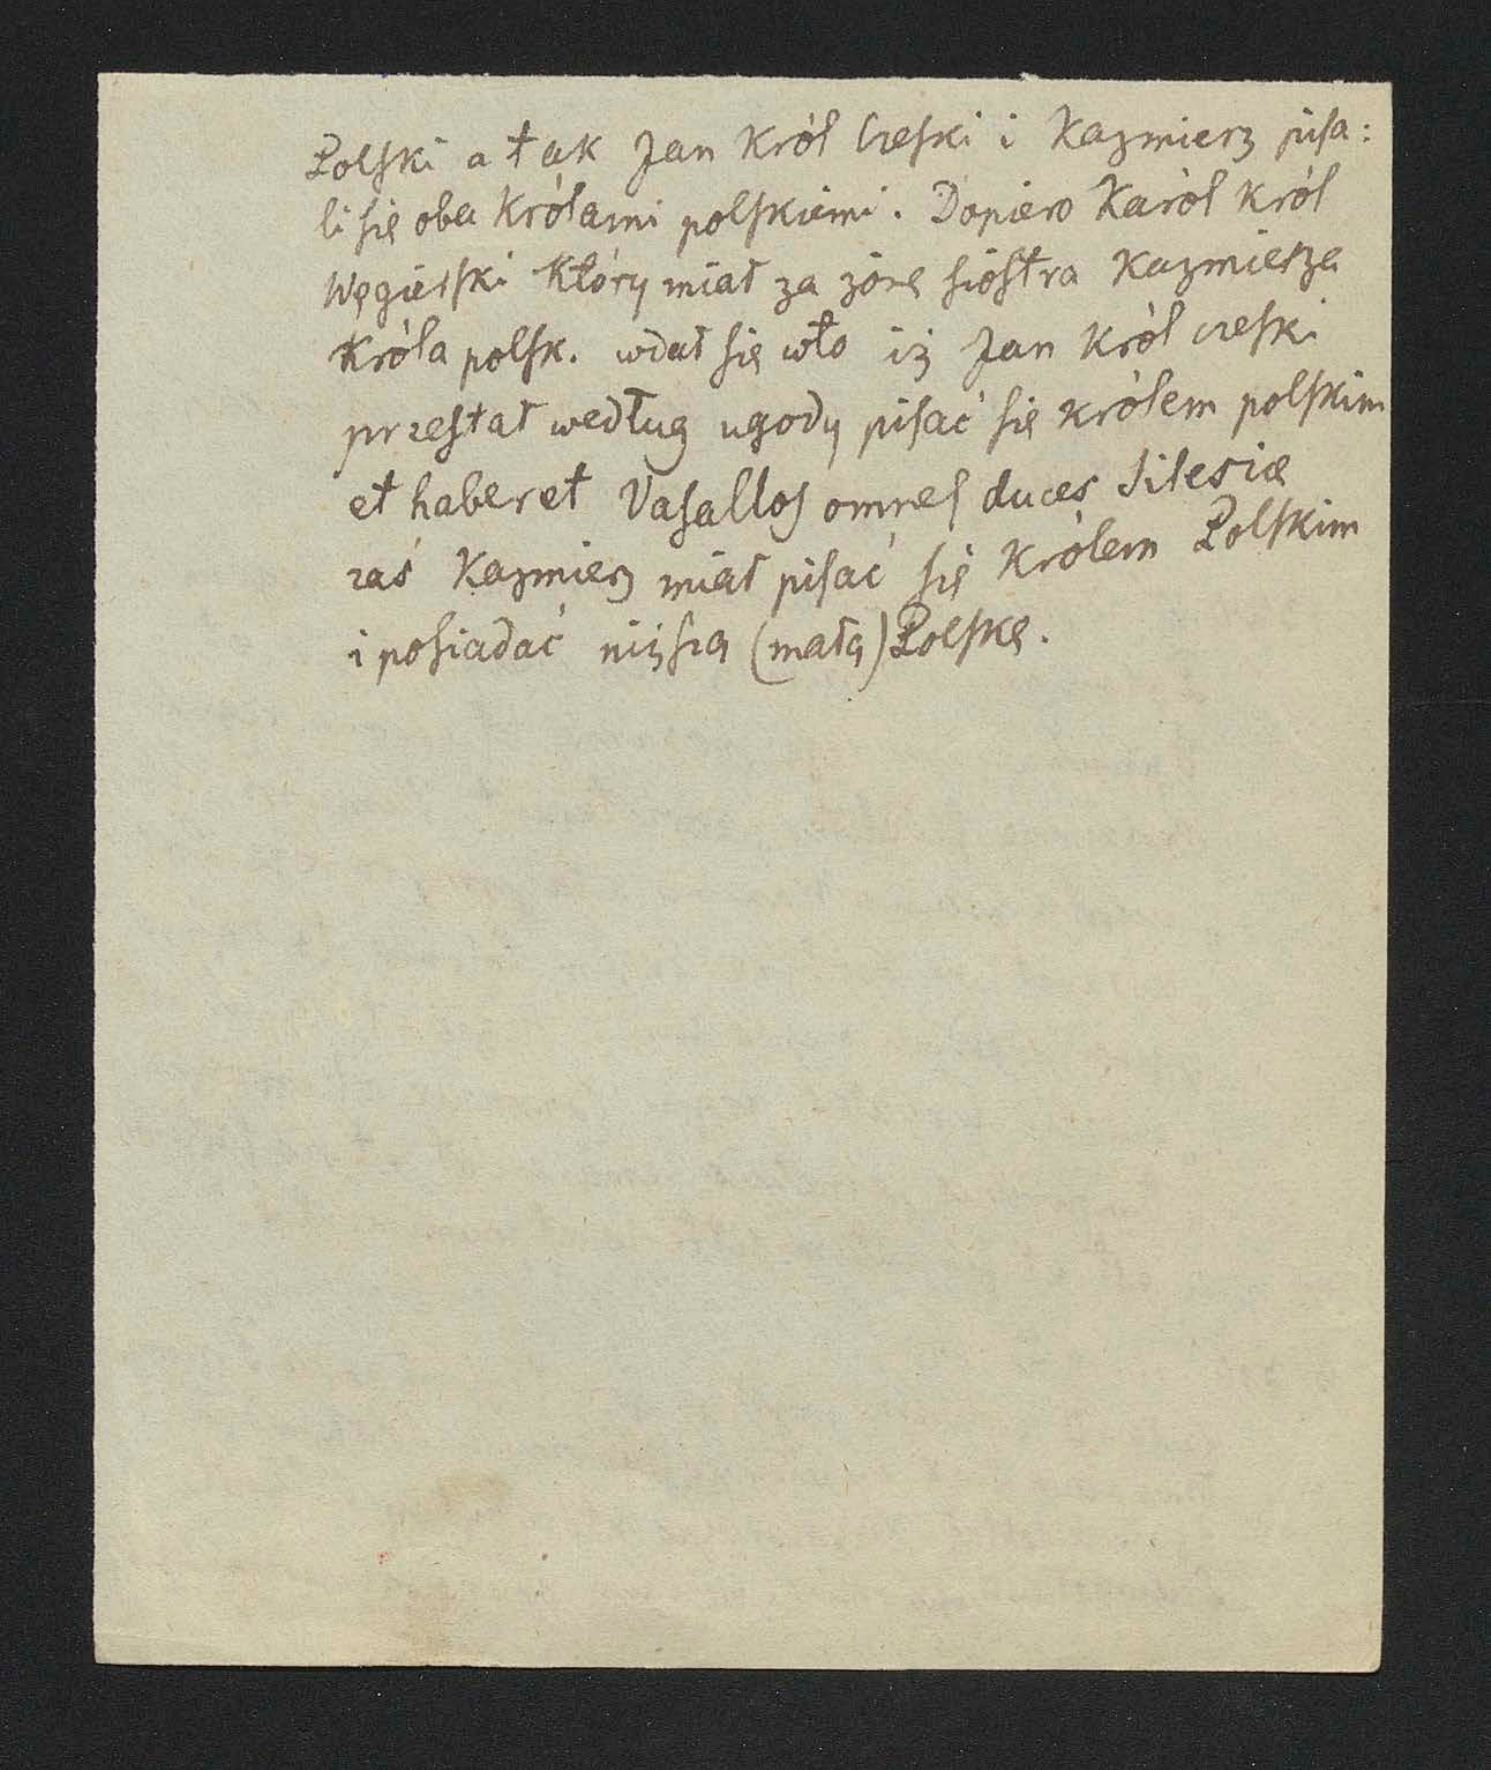 Polſki a tak Jan Król Czeſki i Kazmierz piſa:
li ſię oba Królami polſkiemi. Dopiero Karól Król
Węgierſki Który miał za żonę ſioſtra Kazmierza
Króla polſk. wdał ſię wto iż Jan Król czeſki
przeſtał według ugody piſać ſię królem polſkim
et haberet Vaſalloſ omneſ duces Sileſiæ
zaś Kazmierz miał piſać ſię Królem Polſkim
i poſiadać niżſzą (małą) Polſkę.